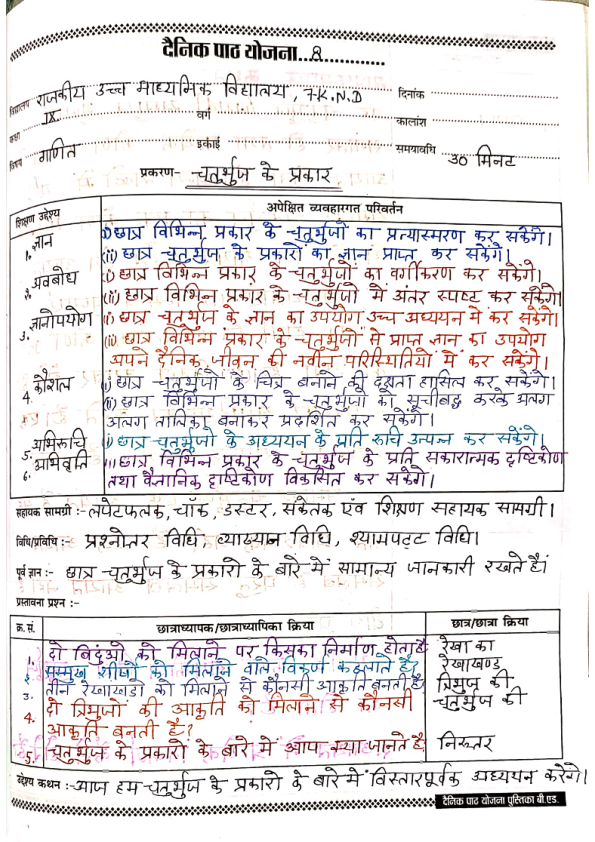 दैनिक पाठ योजना..8............
विद्यालय राजकीय उच्च माध्यमिक विद्यालय, 7 K.N.D दिनांक
कक्षा IX वर्ग कालांश
विषय गणित इकाई समयावधि 30 मिनट
प्रकरण- चतुर्भुज के प्रकार
शिक्षण उद्देश्य अपेक्षित व्यवहारगत परिवर्तन
1. ज्ञान (i) छात्र विभिन्न प्रकार के चतुर्भुजों का प्रत्यास्मरण कर सकेंगे।
(ii) छात्र चतुर्भुज के प्रकारों का ज्ञान प्राप्त कर सकेंगे।
2. अवबोध (i) छात्र विभिन्न प्रकार के चतुर्भुजों का वर्गीकरण कर सकेंगे।
(ii) छात्र विभिन्न प्रकार के चतुर्भुजों में अंतर स्पष्ट कर सकेंगे।
3. ज्ञानोपयोग (i) छात्र चतुर्भुज के ज्ञान का उपयोग उच्च अध्ययन में कर सकेंगे।
(ii) छात्र विभिन्न प्रकार के चतुर्भुजों से प्राप्त ज्ञान का उपयोग
अपने दैनिक जीवन की नवीन परिस्थितियों में कर सकेंगे।
4. कौशल (i) छात्र चतुर्भुजों के चित्र बनाने की दक्षता हासिल कर सकेंगे।
(ii) छात्र विभिन्न प्रकार के चतुर्भुजों को सूचीबद्ध करके अलग
अलग तालिका बनाकर प्रदर्शित कर सकेंगे।
5. अभिरूचि (i) छात्र चतुर्भुजों के अध्ययन के प्रति रुचि उत्पन्न कर सकेंगे।
6. अभिवृत्ति (i) छात्र विभिन्न प्रकार के चतुर्भुज के प्रति सकारात्मक दृष्टिकोण
तथा वैज्ञानिक दृष्टिकोण विकसित कर सकेंगे।
सहायक सामग्री :- लपेटफलक, चॉक, डस्टर, संकेतक एवं शिक्षण सहायक सामग्री।
विधि/प्रविधि :- प्रश्नोत्तर विधि, व्याख्यान विधि, श्यामपट्ट विधि।
पूर्व ज्ञान :- छात्र चतुर्भुज के प्रकारों के बारे में सामान्य जानकारी रखते हैं।
प्रस्तावना प्रश्न :-
क्र.सं. छात्राध्यापक/छात्राध्यापिका क्रिया छात्र/छात्रा क्रिया
1. दो बिंदुओं को मिलाने पर किसका निर्माण होता है रेखा का
2. सम्मुख शीर्षों को मिलाने वाले विकर्ण कहलाते हैं। रेखाखण्ड
3. तीन रेखाखंडों को मिलाने से कौनसी आकृति बनती है। त्रिभुज की
4. दो त्रिभुजों की आकृति को मिलाने से कौनसी चतुर्भुज की
आकृति बनती है?
5. चतुर्भुज के प्रकारों के बारे में आप क्या जानते है निरुत्तर
उद्देश्य कथन :- आज हम चतुर्भुज के प्रकारों के बारे में विस्तारपूर्वक अध्ययन करेंगे।
दैनिक पाठ योजना पुस्तिका बी.एड.